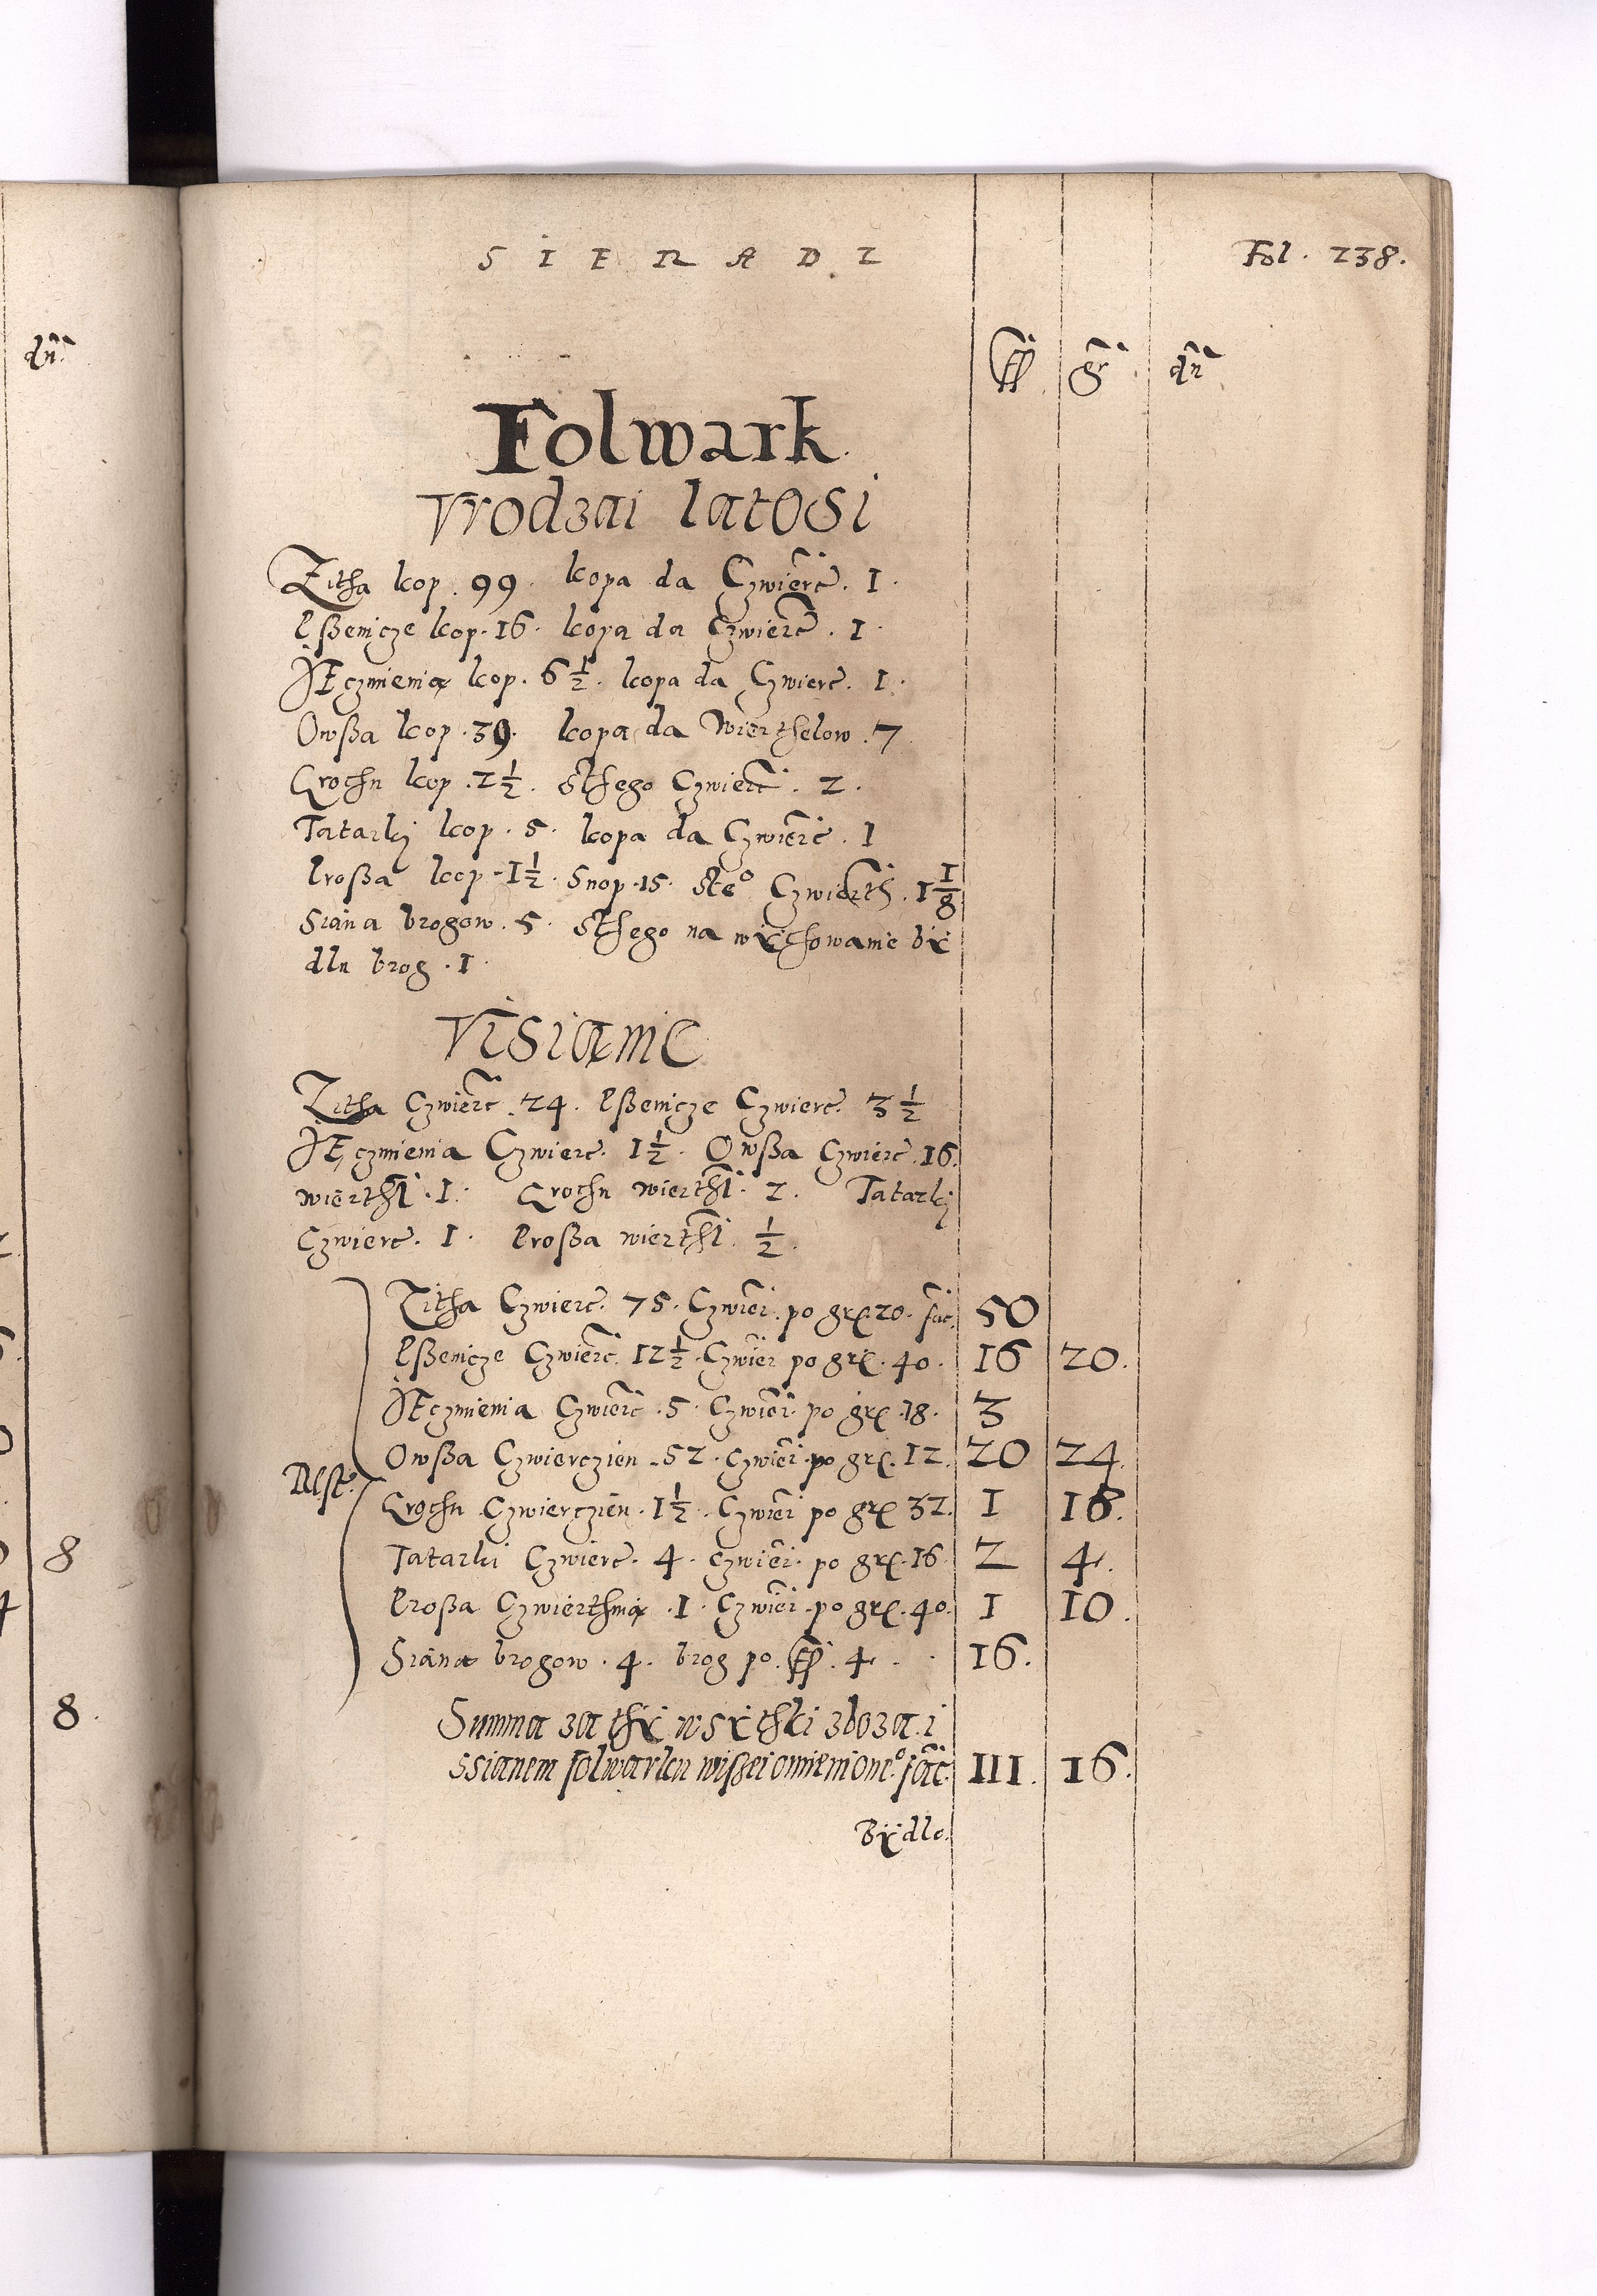 dn̄
8
8.
SIERADZ
Fol. 238.
ff gr dn̄
Folwark.
Vrodzai latosi
Zitha kop. 99. kopa da Czwierc. 1.
Pßenicze kop. 16. kopa da Czwierc. 1.
JEczmienia kop. 6 1/2. kopa da Czwierc. 1.
Owßa kop. 39. kopa da Wierthelow. 7
Grochu kop. 2 1/2. Sthego Czwierc. 2.
Tatarkj kop. 5. kopa da Czwierc. 1
Proßa kop. 1 1/2. Snop. 15. Ste° Czwierth. 1 1/8
Siana brogow. 5. Sthego na wÿchowanie bÿ
dla brog. 1.
Visianie
Zitha Czwierc. 24. Pßenicze Czwierc. 3 1/2
JEczmienia Czwierc. 1 1/2. Owßa Czwierc. 16.
wierthl. 1. Grochu wierthl. 2. Tatarkj
Czwierc. 1. Proßa wierthl. 1/2.
Zitha Czwierc. 75. Czwier. po grx. 20. fac. 50
Pßenicze Czwierc. 12 1/2. Czwier po grx. 40. 16 20.
JEczmienia Czwierc. 5. Czwier. po grx. 18. 3
Owßa Czwierczien. 52. Czwier. po grx. 12. 20 24.
Rest.
Grochu Czwierczien. 1 1/2. Czwier po grx 32. 1 18.
Tatarki Czwierc. 4. Czwier. po grx. 16. 2 4.
Proßa Czwierthnia. 1. Czwier. po grx. 40. 1 10.
Siana brogow. 4. brog po. ff. 4. 16.
Summa za thÿ wsÿthki zboza. i
ssianem folwarku wißei omienione° fac. 111. 16.
Bÿdlo.